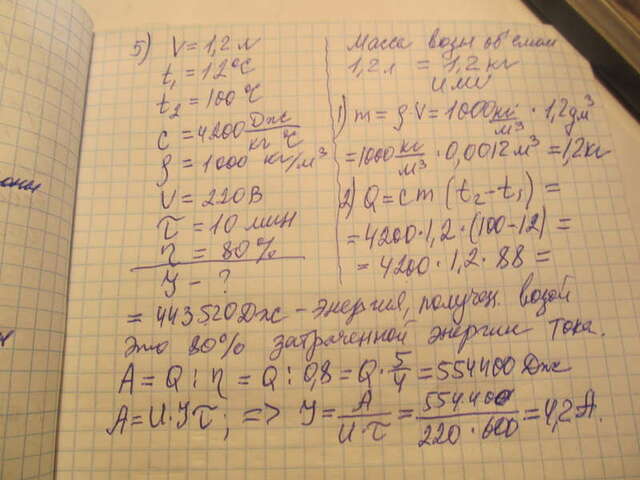 5) V = 1,2 л
t₁ = 12°C
t₂ = 100°C
c = 4200 Дж/кг°C
ρ = 1000 кг/м³
V = 220 В
τ = 10 мин
η = 80%
У – ?
Масса воды объёмом
1,2 л = 1,2 кг
или
1) m = ρ·V = 1000 кг/м³ · 1,2 дм³
= 1000 кг/м³ · 0,0012 м³ = 1,2 кг
2) Q = cm (t₂ – t₁) =
= 4200 · 1,2 · (100 – 12) =
= 4200 · 1,2 · 88 =
= 443520 Дж – энергия, получен. водой
Это 80% затраченной энергии тока.
A = Q : η = Q : 0,8 = Q · 5/4 = 554400 Дж
A = U·Уτ; => У = A/U·τ = 554400/220·600 = 4,2 A.